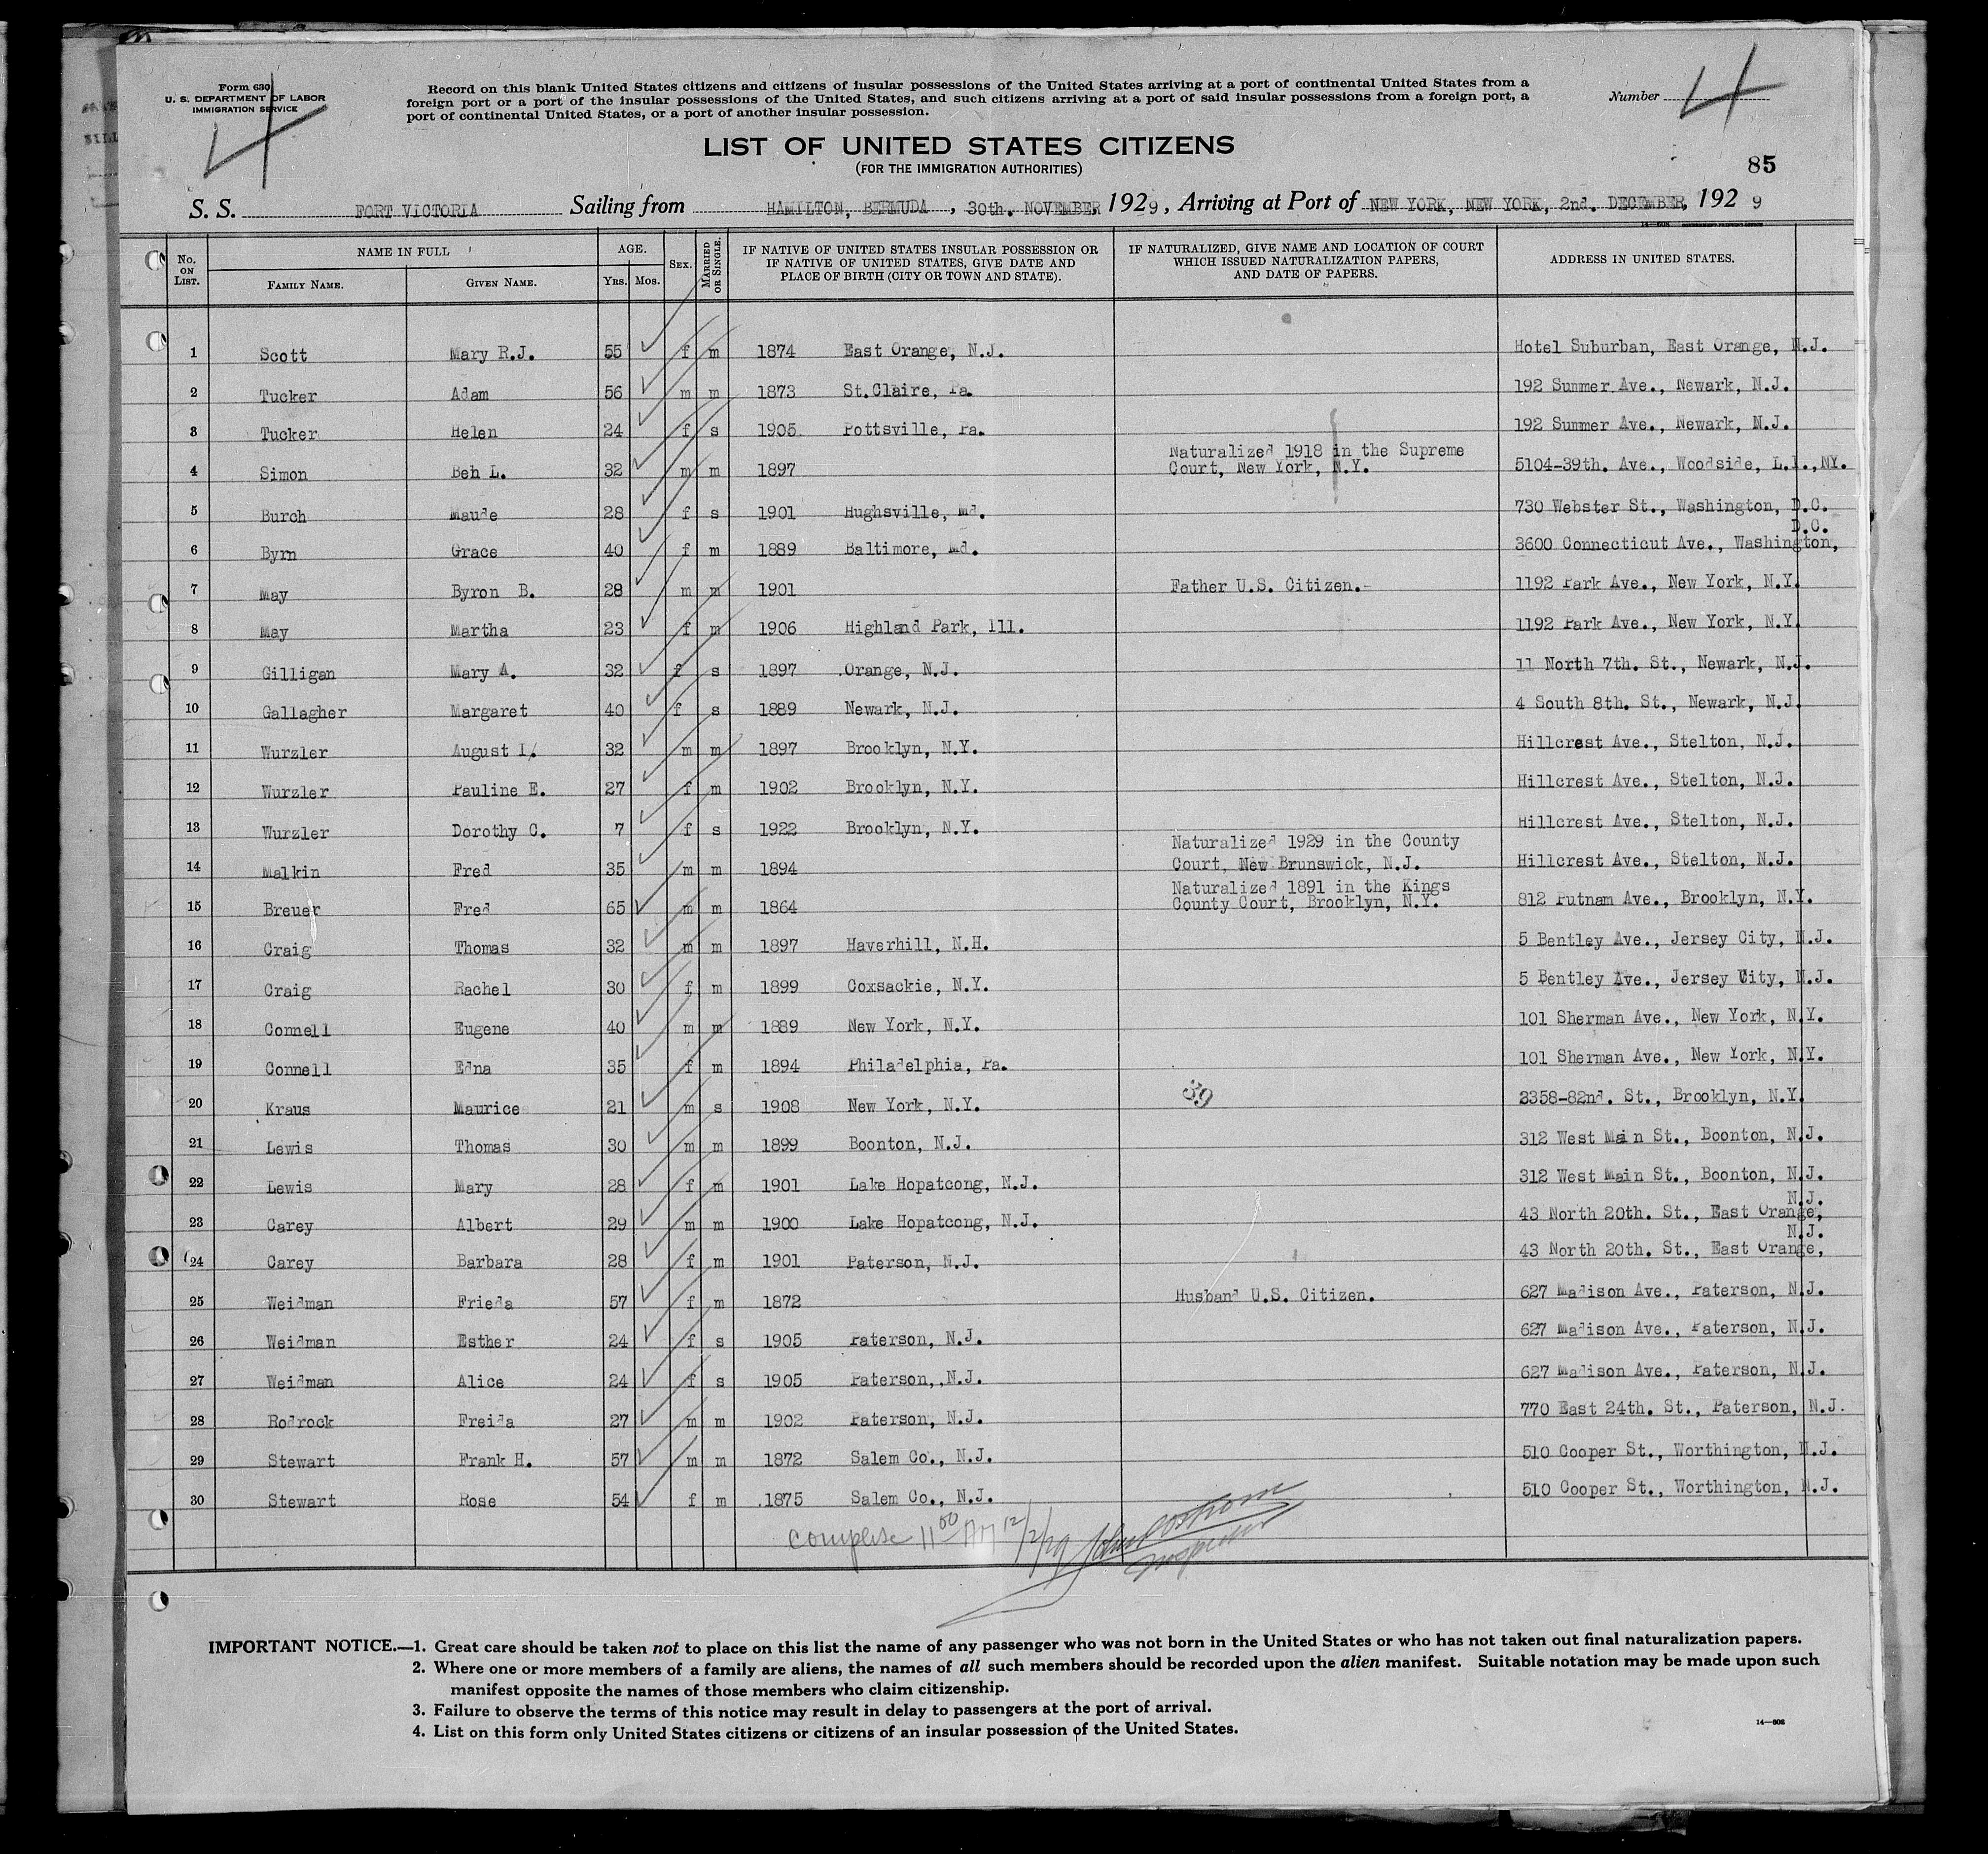 Form 630
U. S. DEPARTMENT OF LABOR
IMMIGRATION SERVICE
4
Record on this blank United States citizens and citizens of insular possessions of the United States arriving at a port of continental United States from a
foreign port or a port of the insular possessions of the United States, and such citizens arriving at a port of said insular possessions from a foreign port, a
port of continental United States, or a port of another insular possession.
Number 4
LIST OF UNITED STATES CITIZENS
(FOR THE IMMIGRATION AUTHORITIES)
85
S. S. FORT VICTORIA Sailing from HAMILTON, BERMUDA, 30th. NOVEMBER, 1929, Arriving at Port of NEW YORK, NEW YORK, 2nd. DECEMBER, 1929
No. ON LIST. NAME IN FULL FAMILY NAME. GIVEN NAME. AGE. YRS. MOS. SEX. MARRIED OR SINGLE. IF NATIVE OF UNITED STATES INSULAR POSSESSION OR IF NATIVE OF UNITED STATES, GIVE DATE AND PLACE OF BIRTH (CITY OR TOWN AND STATE). IF NATURALIZED, GIVE NAME AND LOCATION OF COURT WHICH ISSUED NATURALIZATION PAPERS, AND DATE OF PAPERS. ADDRESS IN UNITED STATES.
1 Scott Mary R.J. 55 f m 1874 East Orange, N.J. Hotel Suburban, East Orange, N.J.
2 Tucker Adam 56 m m 1873 St.Claire, Pa. 192 Summer Ave., Newark, N.J.
3 Tucker Helen 24 f s 1905 Pottsville, Pa. 192 Summer Ave., Newark, N.J.
4 Simon Beh L. 32 m m 1897 Naturalized 1918 in the Supreme Court, New York, N.Y. 5104-39th. Ave., Woodside, L.I., NY.
5 Burch Maude 28 f s 1901 Hughsville, Md. 730 Webster St., Washington, D.C.
6 Byrn Grace 40 f m 1889 Baltimore, Md. 3600 Connecticut Ave., Washington, D.C.
7 May Byron B. 28 m m 1901 Father U.S. Citizen.- 1192 Park Ave., New York, N.Y.
8 May Martha 23 f m 1906 Highland Park, Ill. 1192 Park Ave., New York, N.Y.
9 Gilligan Mary A. 32 f s 1897 Orange, N.J. 11 North 7th. St., Newark, N.J.
10 Gallagher Margaret 40 f s 1889 Newark, N.J. 4 South 8th. St., Newark, N.J.
11 Wurzler August I. 32 m m 1897 Brooklyn, N.Y. Hillcrest Ave., Stelton, N.J.
12 Wurzler Pauline E. 27 f m 1902 Brooklyn, N.Y. Hillcrest Ave., Stelton, N.J.
13 Wurzler Dorothy C. 7 f s 1922 Brooklyn, N.Y. Hillcrest Ave., Stelton, N.J.
14 Malkin Fred 35 m m 1894 Naturalized 1929 in the County Court, New Brunswick, N.J. Hillcrest Ave., Stelton, N.J.
15 Breuer Fred 65 m m 1864 Naturalized 1891 in the Kings County Court, Brooklyn, N.Y. 812 Putnam Ave., Brooklyn, N.Y.
16 Craig Thomas 32 m m 1897 Haverhill, N.H. 5 Bentley Ave., Jersey City, N.J.
17 Craig Rachel 30 f m 1899 Coxsackie, N.Y. 5 Bentley Ave., Jersey City, N.J.
18 Connell Eugene 40 m m 1889 New York, N.Y. 101 Sherman Ave., New York, N.Y.
19 Connell Edna 35 f m 1894 Philadelphia, Pa. 101 Sherman Ave., New York, N.Y.
20 Kraus Maurice 21 m s 1908 New York, N.Y. 39 2358-82nd. St., Brooklyn, N.Y.
21 Lewis Thomas 30 m m 1899 Boonton, N.J. 312 West Main St., Boonton, N.J.
22 Lewis Mary 28 f m 1901 Lake Hopatcong, N.J. 312 West Main St., Boonton, N.J.
23 Carey Albert 29 m m 1900 Lake Hopatcong, N.J. 43 North 20th. St., East Orange, N.J.
24 Carey Barbara 28 f m 1901 Paterson, N.J. 43 North 20th. St., East Orange, N.J.
25 Weidman Frieda 57 f m 1872 Husband U.S. Citizen. 627 Madison Ave., Paterson, N.J.
26 Weidman Esther 24 f s 1905 Paterson, N.J. 627 Madison Ave., Paterson, N.J.
27 Weidman Alice 24 f s 1905 Paterson, N.J. 627 Madison Ave., Paterson, N.J.
28 Rodrock Freida 27 m m 1902 Paterson, N.J. 770 East 24th. St., Paterson, N.J.
29 Stewart Frank H. 57 m m 1872 Salem Co., N.J. 510 Cooper St., Worthington, N.J.
30 Stewart Rose 54 f m 1875 Salem Co., N.J. 510 Cooper St., Worthington, N.J.
Complete 11 00 AM 12/2/29 Inspector
IMPORTANT NOTICE.—1. Great care should be taken not to place on this list the name of any passenger who was not born in the United States or who has not taken out final naturalization papers.
2. Where one or more members of a family are aliens, the names of all such members should be recorded upon the alien manifest. Suitable notation may be made upon such
manifest opposite the names of those members who claim citizenship.
3. Failure to observe the terms of this notice may result in delay to passengers at the port of arrival.
4. List on this form only United States citizens or citizens of an insular possession of the United States.